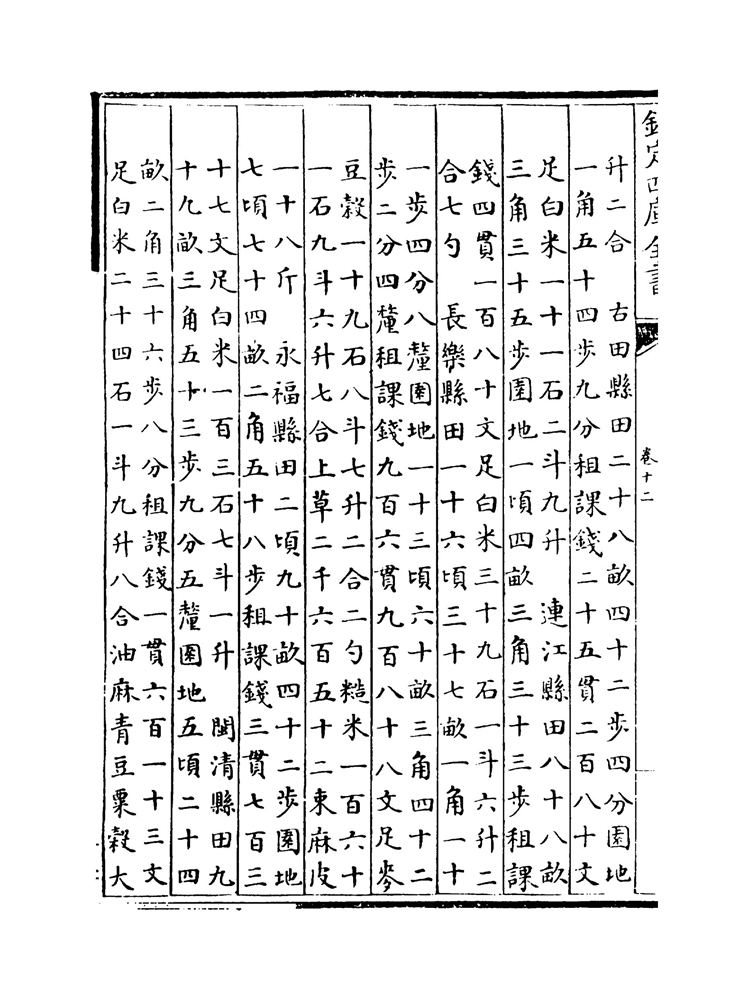 欽定四庫全書
卷十二
升二合　古田縣田二十八畝四十二步四分園地
一角五十四步九分租課錢二十五貫二百八十文
足白米一十一石二斗九升　連江縣田八十八畝
三角三十五步園地一頃四畝三角三十三步租課
錢四貫一百八十文足白米三十九石一斗六升二
合七勺　長樂縣田一十六頃三十七畝一角一十
一步四分八釐園地一十三頃六十畝三角四十二
步二分四釐租課錢九百六貫九百八十八文足麥
豆穀一十九石八斗七升二合二勺糙米一百六十
一石九斗六升七合上草二千六百五十二束麻皮
一十八斤　永福縣田二頃九十畝四十二步園地
七頃七十四畝二角五十八步租課錢三貫七百三
十七文足白米一百三石七斗一升　閩清縣田九
十九畝三角五十三步九分五釐園地五頃二十四
畝二角三十六步八分租課錢一貫六百一十三文
足白米二十四石一斗九升八合油麻青豆粟穀大